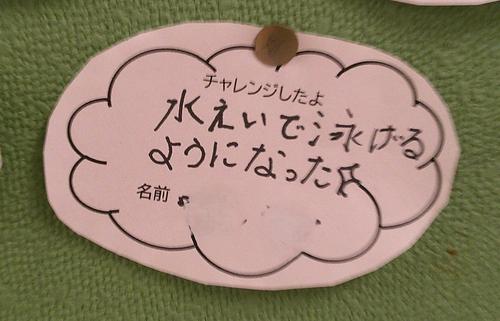 チャレンジしたよ
水えいで泳げる
ようになった☆
名前